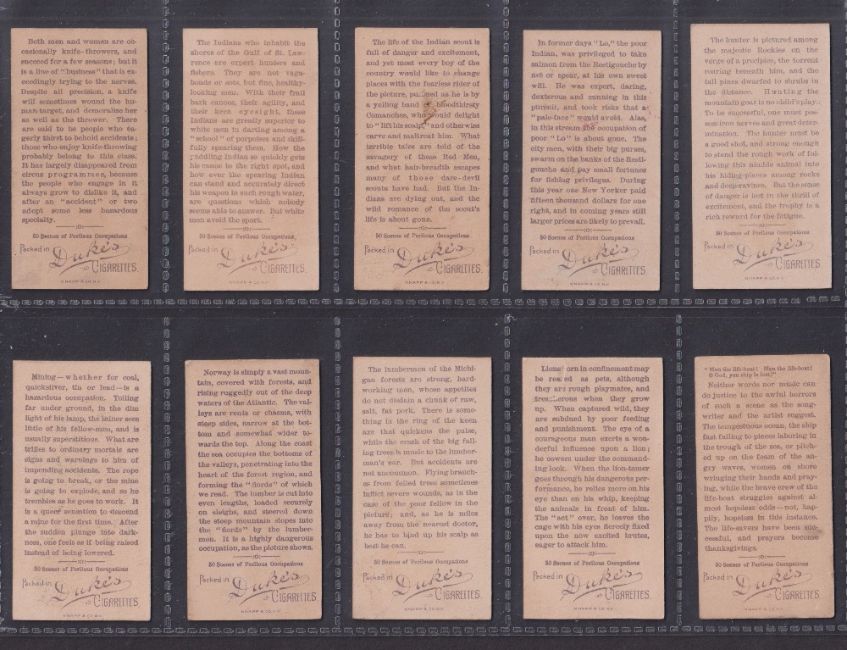 Both men and women are oc-
casionally knife-throwers, and
succeed for a few seasons; but it
is a line of "business" that is ex-
ceedingly trying to the nerves.
Despite all precision, a knife
will sometimes wound the hu-
man target, and demoralize her
as well as the thrower. There
are said to be people who ea-
gerly thirst to behold accidents;
those who enjoy knife-throwing
probably belong to this class.
It has largely disappeared from
circus programmes, because
the people who engage in it
always grow to dislike it, and
after an "accident" or two
adopt some less hazardous
specialty.
50 Scenes of Perilous Occupations
Packed in
Duke's
CIGARETTES.
KNAPP & CO. N.Y.
The Indians who inhabit the
shores of the Gulf of St. Law-
rence are expert hunters and
fishers. They are not vaga-
bonds or sots, but fine, healthy-
looking men. With their frail
bark canoes, their agility, and
their keen eyesight, these
Indians are greatly superior to
white men in darting among a
"school" of porpoises and skill-
fully spearing them. How the
paddling Indian so quickly gets
his canoe to the right spot, and
how ever the spearing Indian
can stand and accurately direct
his weapon in such rough water,
are questions which nobody
seems able to answer. But white
men avoid the sport.
50 Scenes of Perilous Occupations
Packed in
Duke's
CIGARETTES.
KNAPP & CO. N.Y.
The life of the Indian scout is
full of danger and excitement,
and yet most every boy of the
country would like to change
places with the fearless rider of
the picture, pursued as he is by
a yelling band of bloodthirsty
Comanches, who would delight
to "lift his scalp" and otherwise
carve and maltreat him. What
terrible tales are told of the
savagery of these Red Men,
and what hair-breadth escapes
many of those dare-devil
scouts have had. But the In-
dians are dying out, and the
wild romance of the scout's
life is about gone.
50 Scenes of Perilous Occupations
Packed in
Duke's
CIGARETTES.
KNAPP & CO. N.Y.
In former days "Lo," the poor
Indian, was privileged to take
salmon from the Restigouche by
net or spear, at his own sweet
will. He was expert, daring,
dexterous and cunning in this
pursuit, and took risks that a
"pale-face" would avoid. Alas,
in this stream the occupation of
poor "Lo" is about gone. The
city men, with their big purses,
swarm on the banks of the Resti-
gouche and pay small fortunes
for fishing privileges. During
this year one New Yorker paid
fifteen thousand dollars for one
right, and in coming years still
larger prices are likely to prevail.
50 Scenes of Perilous Occupations
Packed in
Duke's
CIGARETTES.
KNAPP & CO. N.Y.
The hunter is pictured among
the majestic Rockies on the
verge of a precipice, the torrent
roaring beneath him, and the
tall pines dwarfed to shrubs in
the distance. Hunting the
mountain goat is no child's play.
To be successful, one must pos-
sess iron nerves and great deter-
mination. The hunter must be
a good shot, and strong enough
to stand the rough work of fol-
lowing this nimble animal into
his hiding-places among rocks
and deep ravines. But the sense
of danger is lost in the thrill of
excitement, and the trophy is a
rich reward for the fatigue.
50 Scenes of Perilous Occupations
Packed in
Duke's
CIGARETTES.
KNAPP & CO. N.Y.
Mining—whether for coal,
quicksilver, tin or lead—is a
hazardous occupation. Toiling
far under ground, in the dim
light of his lamp, the miner sees
little of his fellow-men, and is
usually superstitious. What are
trifles to ordinary mortals are
signs and warnings to him of
impending accidents. The rope
is going to break, or the mine
is going to explode, and so he
trembles as he goes to work. It
is a queer sensation to descend
a mine for the first time. After
the sudden plunge into dark-
ness, one feels as if being raised
instead of being lowered.
50 Scenes of Perilous Occupations
Packed in
Duke's
CIGARETTES.
KNAPP & CO. N.Y.
Norway is simply a vast moun-
tain, covered with forests, and
rising ruggedly out of the deep
waters of the Atlantic. The val-
leys are rents or chasms, with
steep sides, narrow at the bot-
tom and somewhat wider to-
wards the top. Along the coast
the sea occupies the bottoms of
the valleys, penetrating into the
heart of the forest region, and
forming the "fiords" of which
we read. The lumber is cut into
even lengths, loaded securely
on sleighs, and steered down
the steep mountain slopes into
the "fiords" by the lumber-
men. It is a highly dangerous
occupation, as the picture shows.
50 Scenes of Perilous Occupations
Packed in
Duke's
CIGARETTES.
KNAPP & CO. N.Y.
The lumbermen of the Michi-
gan forests are strong, hard-
working men, whose appetites
do not disdain a chunk of raw,
salt, fat pork. There is some-
thing in the ring of the keen
axe that quickens the pulse,
while the crash of the big fall-
ing trees is music to the lumber-
man's ear. But accidents are
not uncommon. Flying branch-
es from felled trees sometimes
inflict severe wounds, as in the
case of the poor fellow in the
picture; and, as he is miles
away from the nearest doctor,
he has to bind up his scalp as
best he can.
50 Scenes of Perilous Occupations
Packed in
Duke's
CIGARETTES.
KNAPP & CO. N.Y.
Lions born in confinement may
be reared as pets, although
they are rough playmates, and
treacherous when they grow
up. When captured wild, they
are subdued by poor feeding
and punishment. The eye of a
courageous man exerts a won-
derful influence upon a lion;
he cowers under the command-
ing look. When the lion-tamer
goes through his dangerous per-
formance, he relies more on his
eye than on his whip, keeping
the animals in front of him.
The "act" over, he leaves the
cage with his eyes fiercely fixed
upon the now excited brutes,
eager to attack him.
50 Scenes of Perilous Occupations
Packed in
Duke's
CIGARETTES.
KNAPP & CO. N.Y.
"Man the life-boat! Man the life-boat!
O God, you ship is lost!"
Neither words nor music can
do justice to the awful horrors
of such a scene as the song-
writer and the artist suggest.
The tempestuous ocean, the ship
fast failing to pieces laboring in
the trough of the sea, or pitch-
ed up on the foam of the an-
gry waves, women on shore
wringing their hands and pray-
ing, while the brave crew of the
life-boat struggles against al-
most hopeless odds—not, hap-
pily, hopeless in this instance.
The life-savers have been suc-
cessful, and prayers become
thanksgivings.
50 Scenes of Perilous Occupations
Packed in
Duke's
CIGARETTES.
KNAPP & CO. N.Y.